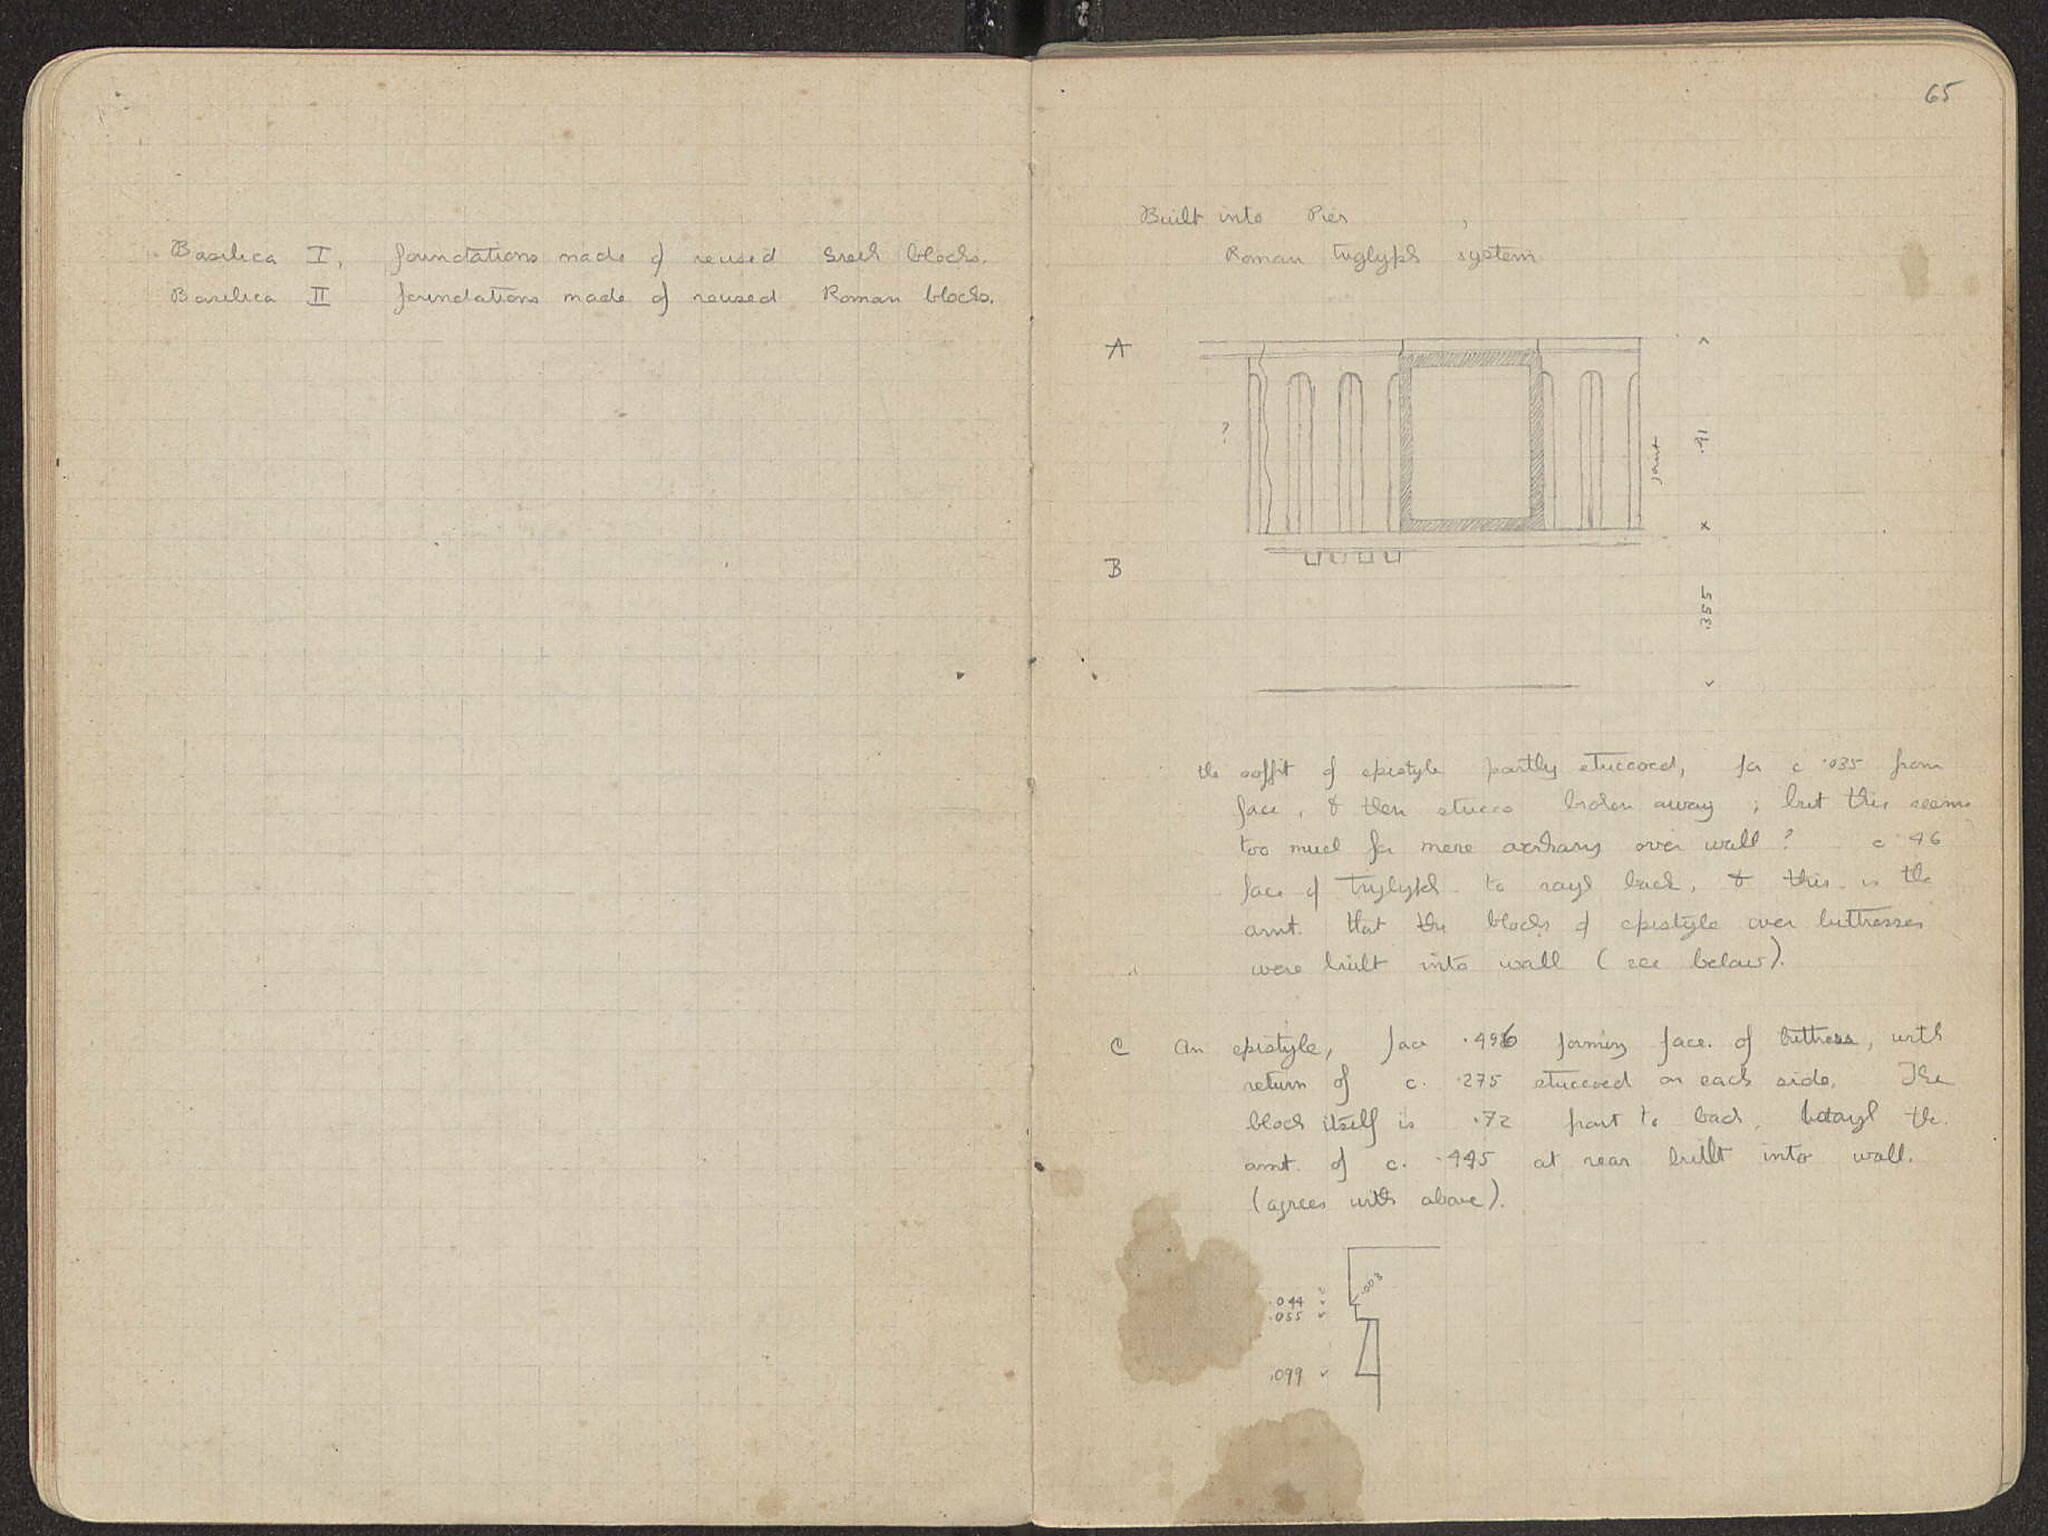 Basilica I, foundations made of reused Greek blocks.
Basilica II foundations made of reused Roman blocks.
65
Built into Pier
Roman triglyph system
A
?
joint
.41
B
.355
the soffit of epistyle partly stuccoed, for c .035 from
face, & then stucco broken away; but this seems
too much for mere overhang over wall? c .46
face of triglyph to rough back, & this is the
amt. that the blocks of epistyle over buttresses
were built into wall (see below).
C An epistyle, face .496 forming face of buttress, with
return of c. .275 stuccoed on each side. The
block itself is .72 front to back, the
amt. of c. .445 at rear built into wall.
(agrees with above).
.003
.044
.055
.099